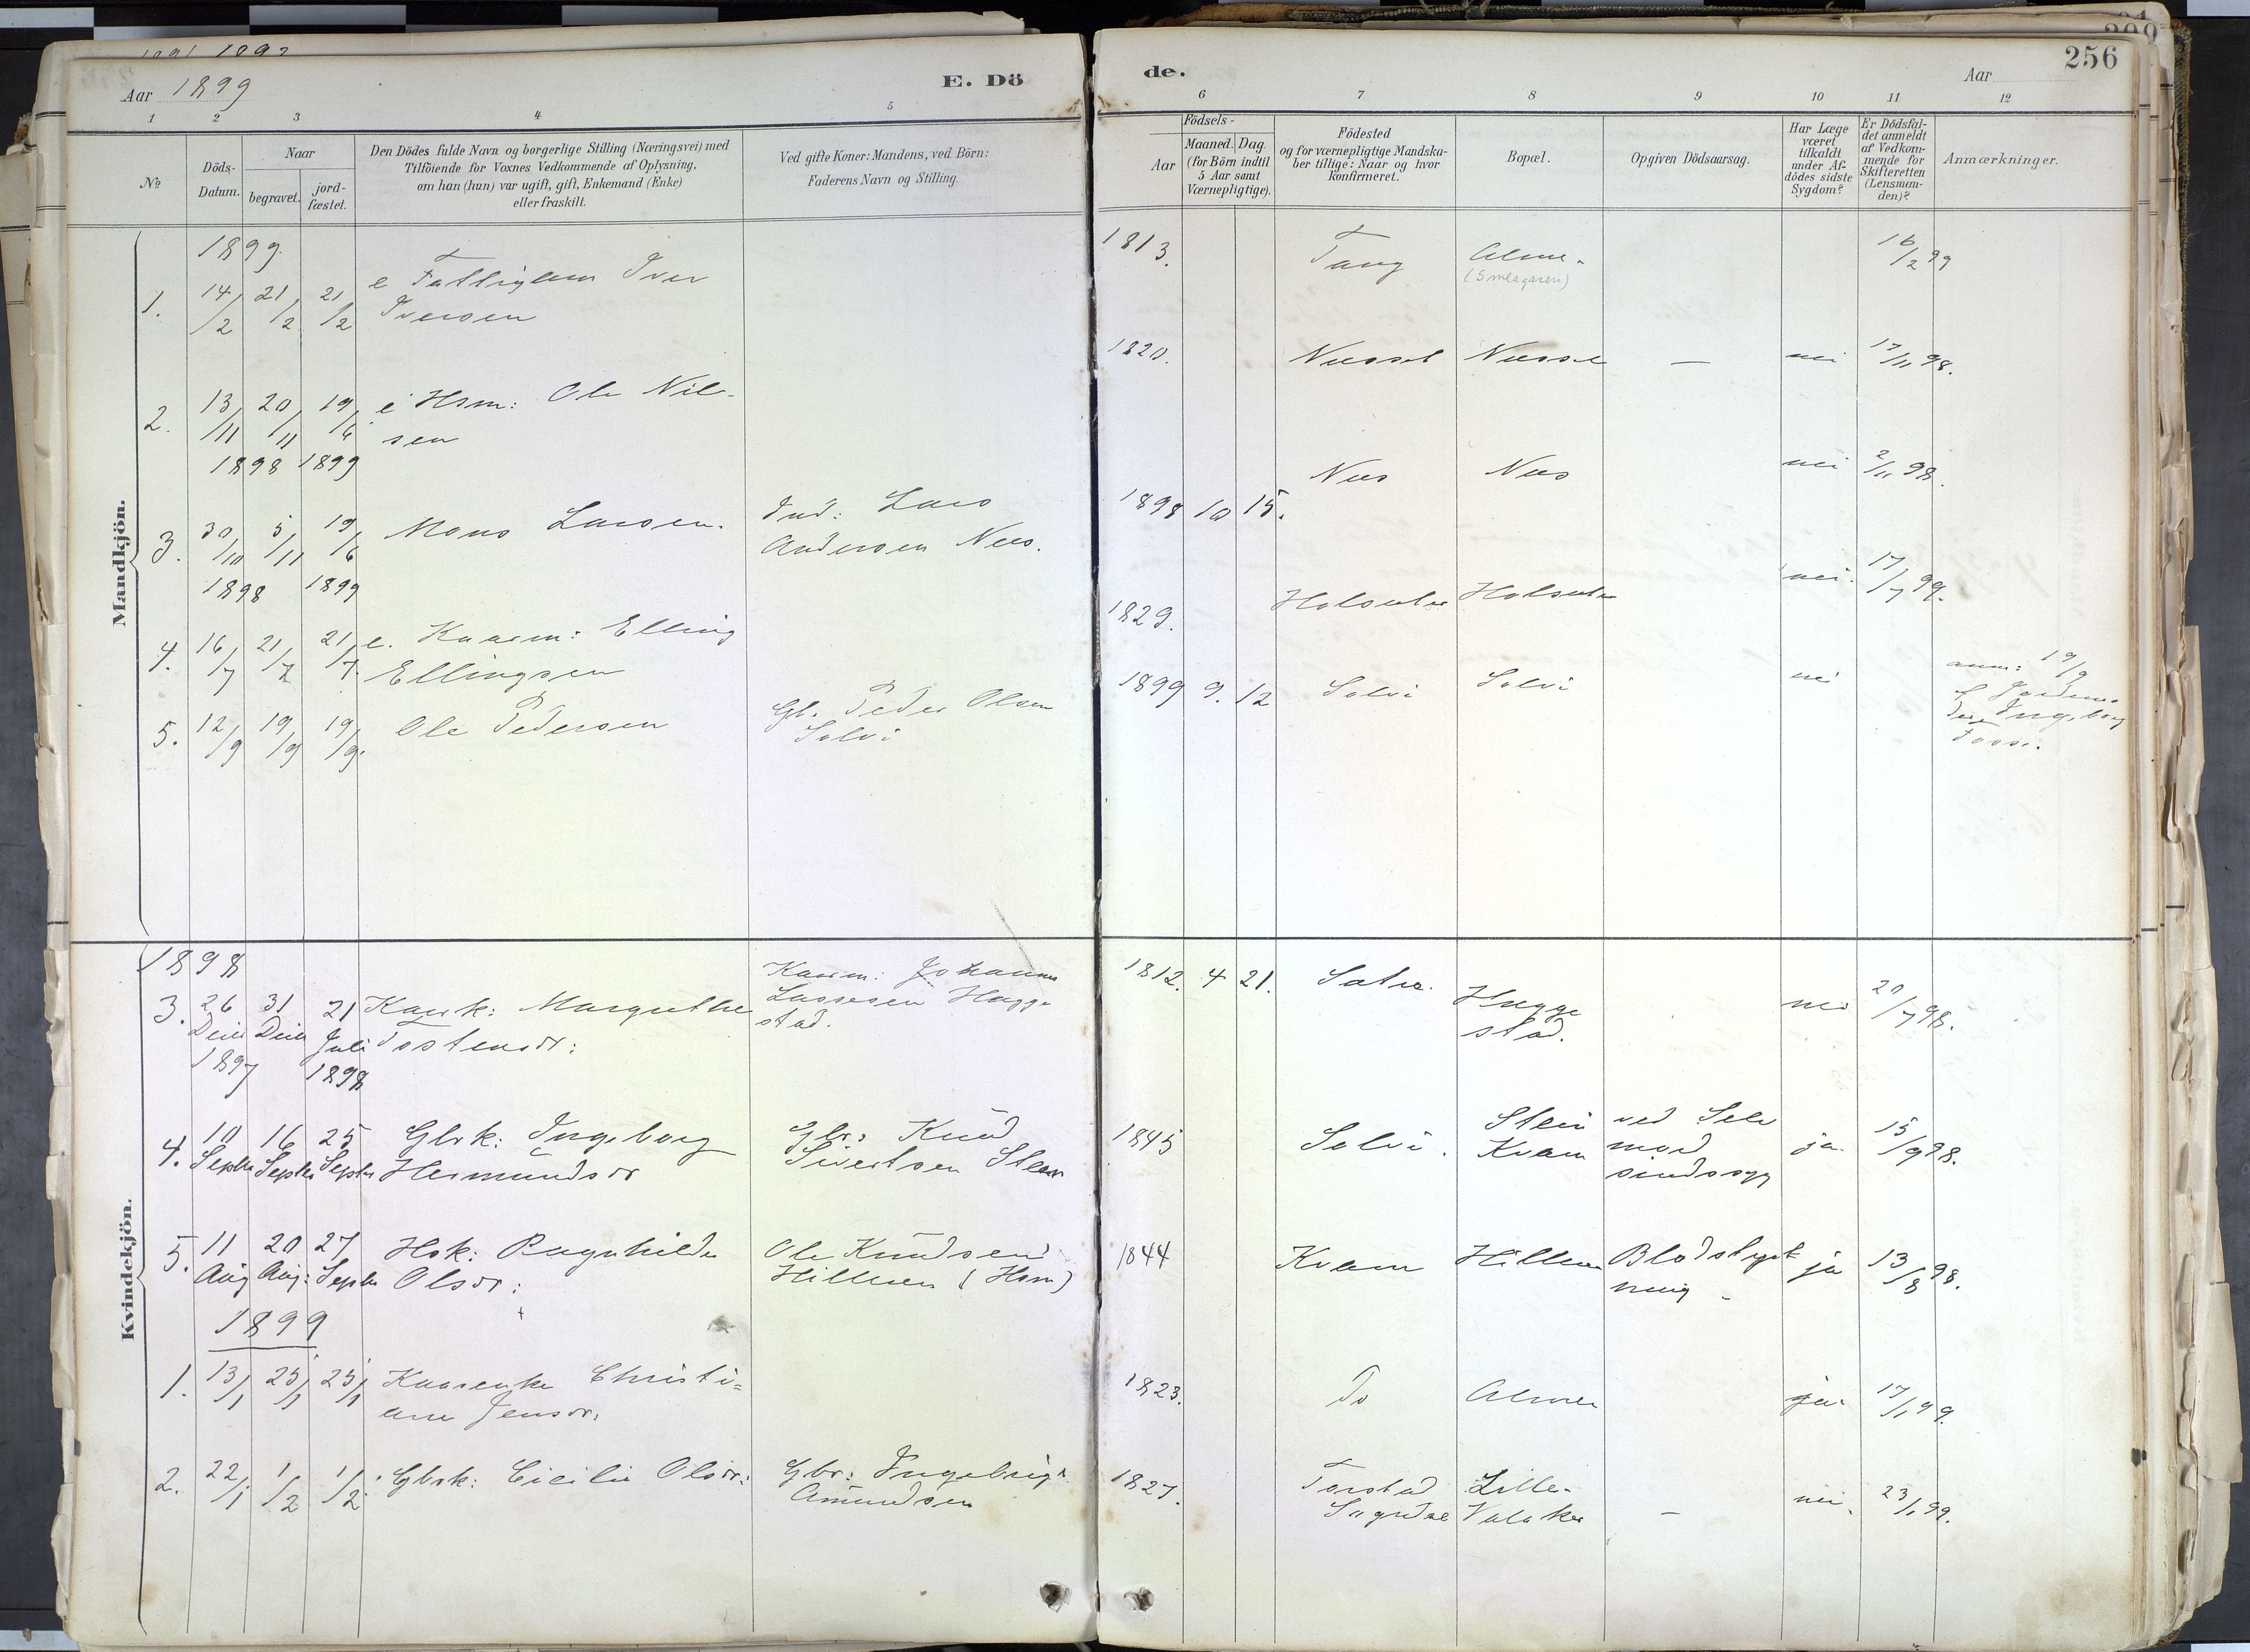 1891 1892
Aar 1899
E. Dö
de.
Aar
256
1 2 3 4 5 6 7 8 9 10 11 12
No
Döds-
Datum.
Naar
begravet.
jord-
fæstet.
Den Dödes fulde Navn og borgerlige Stilling (Næringsvei) med
Tilföiende for Voxnes Vedkommende af Oplysning,
om han (hun) var ugift, gift, Enkemand (Enke)
eller fraskilt.
Ved gifte Koner: Mandens, ved Börn:
Faderens Navn og Stilling.
Födsels-
Aar
Maaned. Dag.
(for Börn indtil
5 Aar samt
Værnepligtige).
Födested
og for værnepligtige Mandska-
ber tillige: Naar og hvor
konfirmeret.
Bopæl.
Opgiven Dödsaarsag.
Har Læge
været
tilkaldt
under Af-
dödes sidste
Sygdom?
Er Dödsfal-
det anmeldt
af Vedkom-
mende for
Skifteretten
(Lensman-
den)?
Anmærkninger.
Mandkjön.
1899.
1. 14/2 21/2 21/2 e Fattiglem Iver
Iversen
1813. Tang Alme.
(Smlagaren)
16/2 99
2. 13/11 20/11 19/6 e Hsm: Ole Nil-
sen
1898 1899
1820. — nei 17/11 98.
3. 30/10 5/11 19/6 Mons Larsen. Ind: Lars
Andersen Nes.
1898 1899
1898 10 15. Nes Nes nei 2/11 98.
4. 16/7 21/7 21/7 e. Kaarm: Elling
Ellingsen
1829. nei. 17/7 99.
5. 12/9 19/9 19/9. Ole Pedersen Gb. Peder Olsen
Solvi
1899 9. 12 Solvi Solvi nei
anm: 19/9
Ingeborg
Kvindekjön.
1898
3. 26 31 21 Kaark: Margrethe
Juli Tostensdr:
1897 1898
Kaarm: Johannes
Lassesen Hagge
stad.
1812. 4 21. Hagge
stad.
nei 20/7 98.
4. 10 16 25 Gbrk: Ingeborg
Septbr Septbr Septbr Hermundsdr
Gbr: Knud
Sivertsen Stein
1845 Solvi. Stein
Kvam
ved Selv
mord
sindssyg
ja. 15/9 98.
5. 11 20 27 Hsk: Ragnhilde
Aug Aug: Septbr Olsdr:
Ole Knudsen
Hilleren (Hsm)
1844 Kvam Hilleren Blodstyrt
ning
ja 13/8 98.
1899
1. 13/1 25/1 25/1 Kaarenke Christi=
ane Jensdr.
1823. Do Almen ja. 17/1 99.
2. 22/1 1/2 1/2 Gbrk: Cicilie Olsdr: Gbr: Ingebrigt
Amundsen
1827. Torstad
Sogndal
Lille-
Valaker
— nei. 23/1 99.